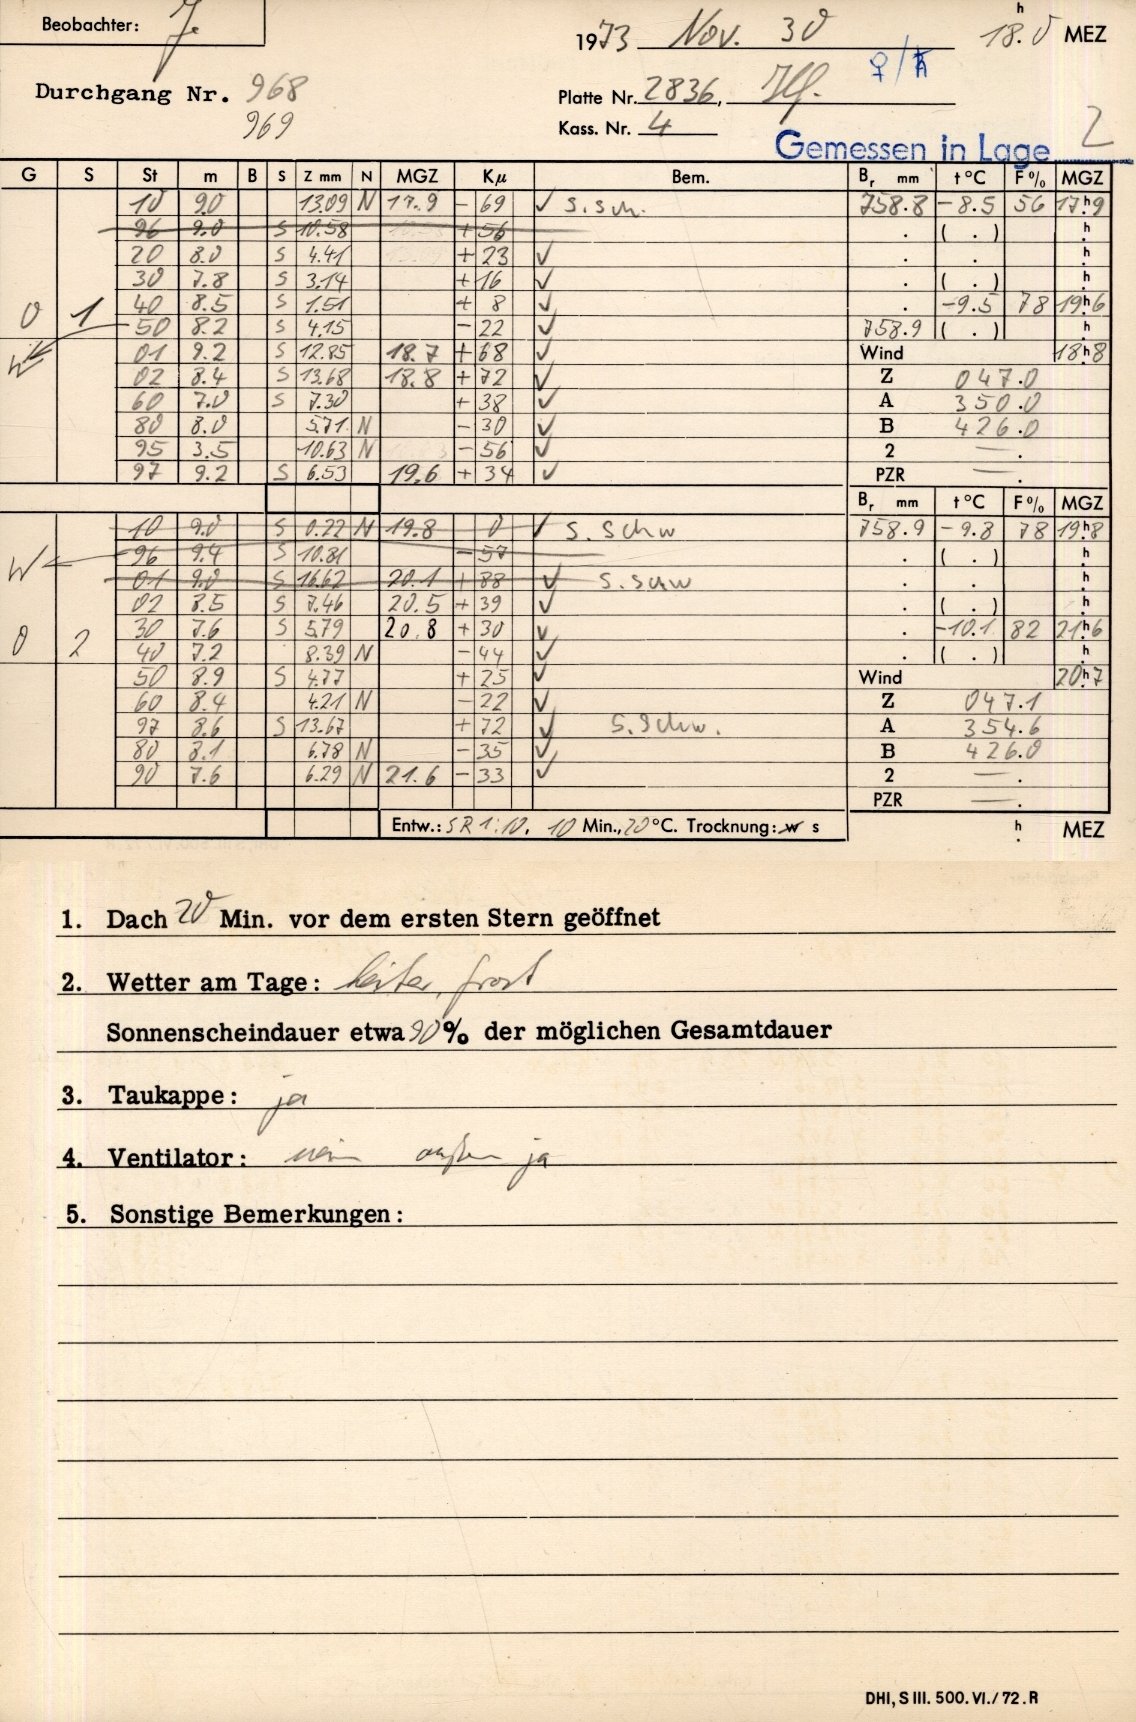 Beobachter:
1973 Nov. 30 18.0 h MEZ
♀/♄
Durchgang Nr. 968
969
Platte Nr. 2836,
Kass. Nr. 4
Gemessen in Lage 2
G S St m B S Z mm N MGZ Kμ Bem. Br mm t °C F % MGZ
10 9.0 13.09 N 17.9 - 69 ✓ s.sch. 758.8 -8.5 56 17h9
96 9.0 S 10.58 + 56 . ( . ) h
20 8.0 S 4.41 + 23 ✓ . . h
30 7.8 S 3.14 + 16 ✓ . ( . ) h
0 1 40 8.5 S 1.51 + 8 ✓ . -9.5 78 19h6
50 8.2 S 4.15 - 22 ✓ 758.9 ( . ) h
W 01 9.2 S 12.85 18.7 + 68 ✓ Wind 18h8
02 8.4 S 13.68 18.8 + 72 ✓ Z 047.0
60 7.0 S 7.30 + 38 ✓ A 350.0
80 8.0 5.71 N - 30 ✓ B 426.0
95 3.5 10.63 N - 56 ✓ 2 — .
97 9.2 S 6.53 19.6 + 34 ✓ PZR — .
Br mm t °C F % MGZ
10 9.0 S 0.22 N 19.8 0 ✓ s. schw 758.9 -9.8 78 19h8
W 96 9.4 S 10.81 - 57 . ( . ) h
01 9.0 S 16.62 20.1 + 88 ✓ s. schw . . h
02 8.5 S 7.46 20.5 + 39 ✓ . ( . ) h
0 2 30 7.6 S 5.79 20.8 + 30 ✓ . -10.1 82 21h6
40 7.2 8.39 N - 44 ✓ . ( . ) h
50 8.9 S 4.77 + 25 ✓ Wind 20h7
60 8.4 4.21 N - 22 ✓ Z 047.1
97 8.6 S 13.67 + 72 ✓ s. schw. A 354.6
80 8.1 6.78 N - 35 ✓ B 426.0
90 7.6 6.29 N 21.6 - 33 ✓ 2 — .
PZR — .
Entw.: SR 1:10. 10 Min., 20 °C. Trocknung: w s h MEZ
1. Dach 20 Min. vor dem ersten Stern geöffnet
2. Wetter am Tage: heiter, frost
Sonnenscheindauer etwa 90 % der möglichen Gesamtdauer
3. Taukappe: ja
4. Ventilator: nein außen ja
5. Sonstige Bemerkungen:
DHI, S III. 500. VI. / 72. R